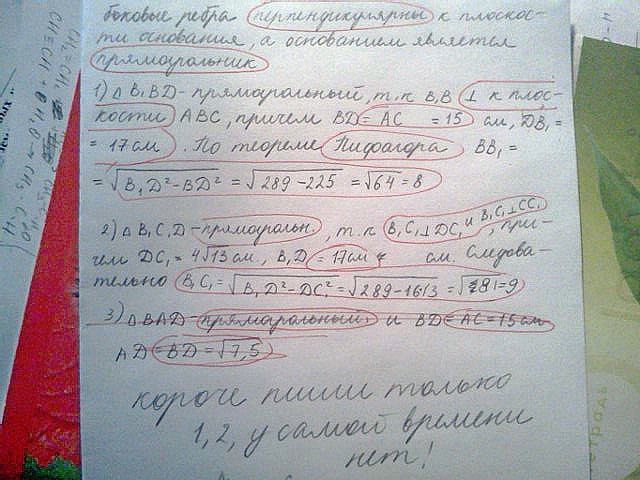 боковые ребра перпендикулярны к плоскос-
ти основания, а основанием является
прямоугольник
1) △ B₁BD - прямоугольный, т.к B₁B ⊥ к плос-
кости ABC, причем BD = AC = 15 см, DB₁ =
= 17 см. По теореме Пифагора BB₁ =
= √B₁D²-BD² = √289-225 = √64 = 8
2) △ B₁C₁D - прямоугольн., т.к B₁C₁⊥DC₁ и B₁C₁⊥CC₁, при-
чем DC₁ = 4√13 см., B₁D = 17 см см. Следова-
тельно B₁C₁ = √B₁D²-DC₁² = √289-16·13 = √81 = 9
3) △ BAD - прямоугольный, и BD = AC = 15 см
AD = BD = √7,5
короче пиши только
1, 2, у самой времени
нет!
CH₂=CH₂